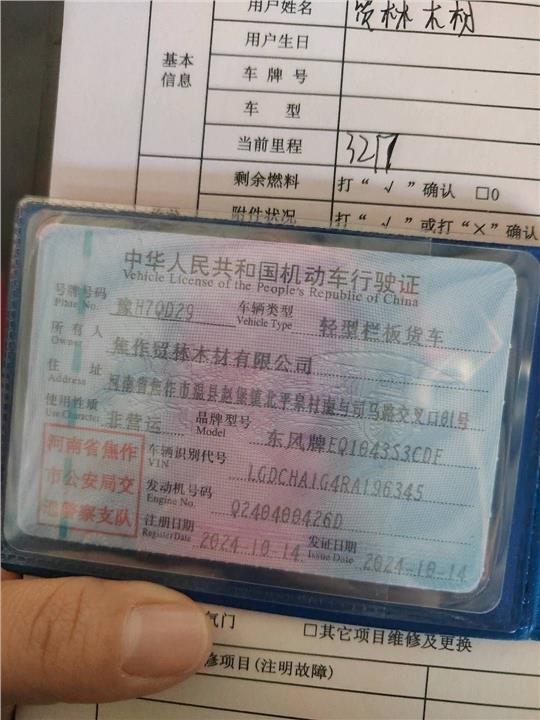 用户姓名 贸林木材
用户生日
基本信息
车牌号
车 型
当前里程 32
剩余燃料 打“√”确认 □0
附件状况 打“√”或打“×”确认
中华人民共和国机动车行驶证
Vehicle License of the People's Republic of China
号牌号码 豫H7QD29 车辆类型 轻型栏板货车
Plate No. Vehicle Type
所有人 焦作贸林木材有限公司
Owner
住 址 河南省焦作市温县赵堡镇北平皋村南与司马路交叉口01号
Address
使用性质 非营运 品牌型号 东风牌EQ1043S3CDF
Use Character Model
河南省焦作市公安局交通警察支队
车辆识别代号 LGDCHA1G4RA196345
VIN
发动机号码 Q240400426D
Engine No.
注册日期 2024-10-14 发证日期 2024-10-14
Register Date Issue Date
气门 □其它项目维修及更换
修项目(注明故障)